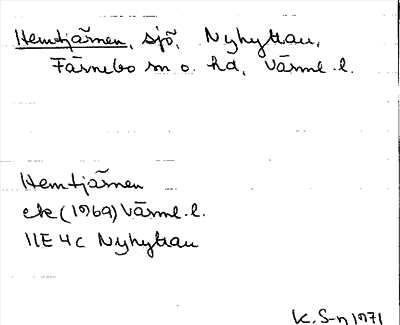 Hemtjärnen, sjö, Nyhyttan,
Färnebo sn o. hd, Värml. l.
Hemtjärnen
ek (1969) Värml. l.
11E 4c Nyhyttan
K. S-n 1971